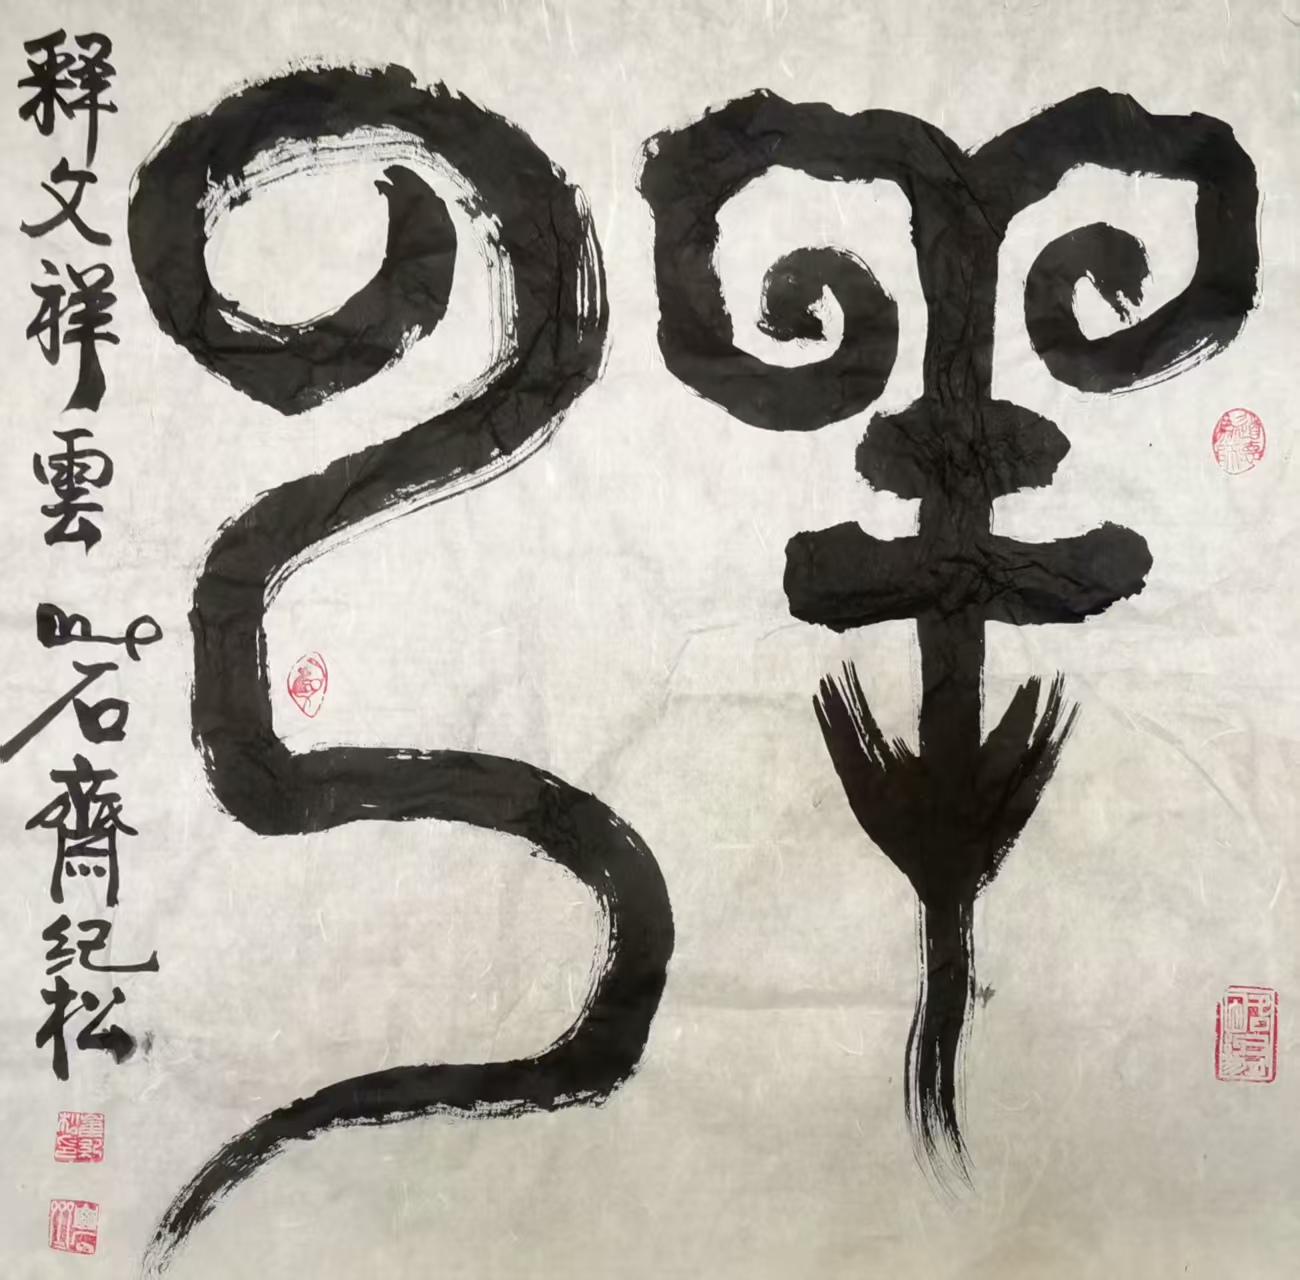 羊
云
释文祥雲石齋纪松